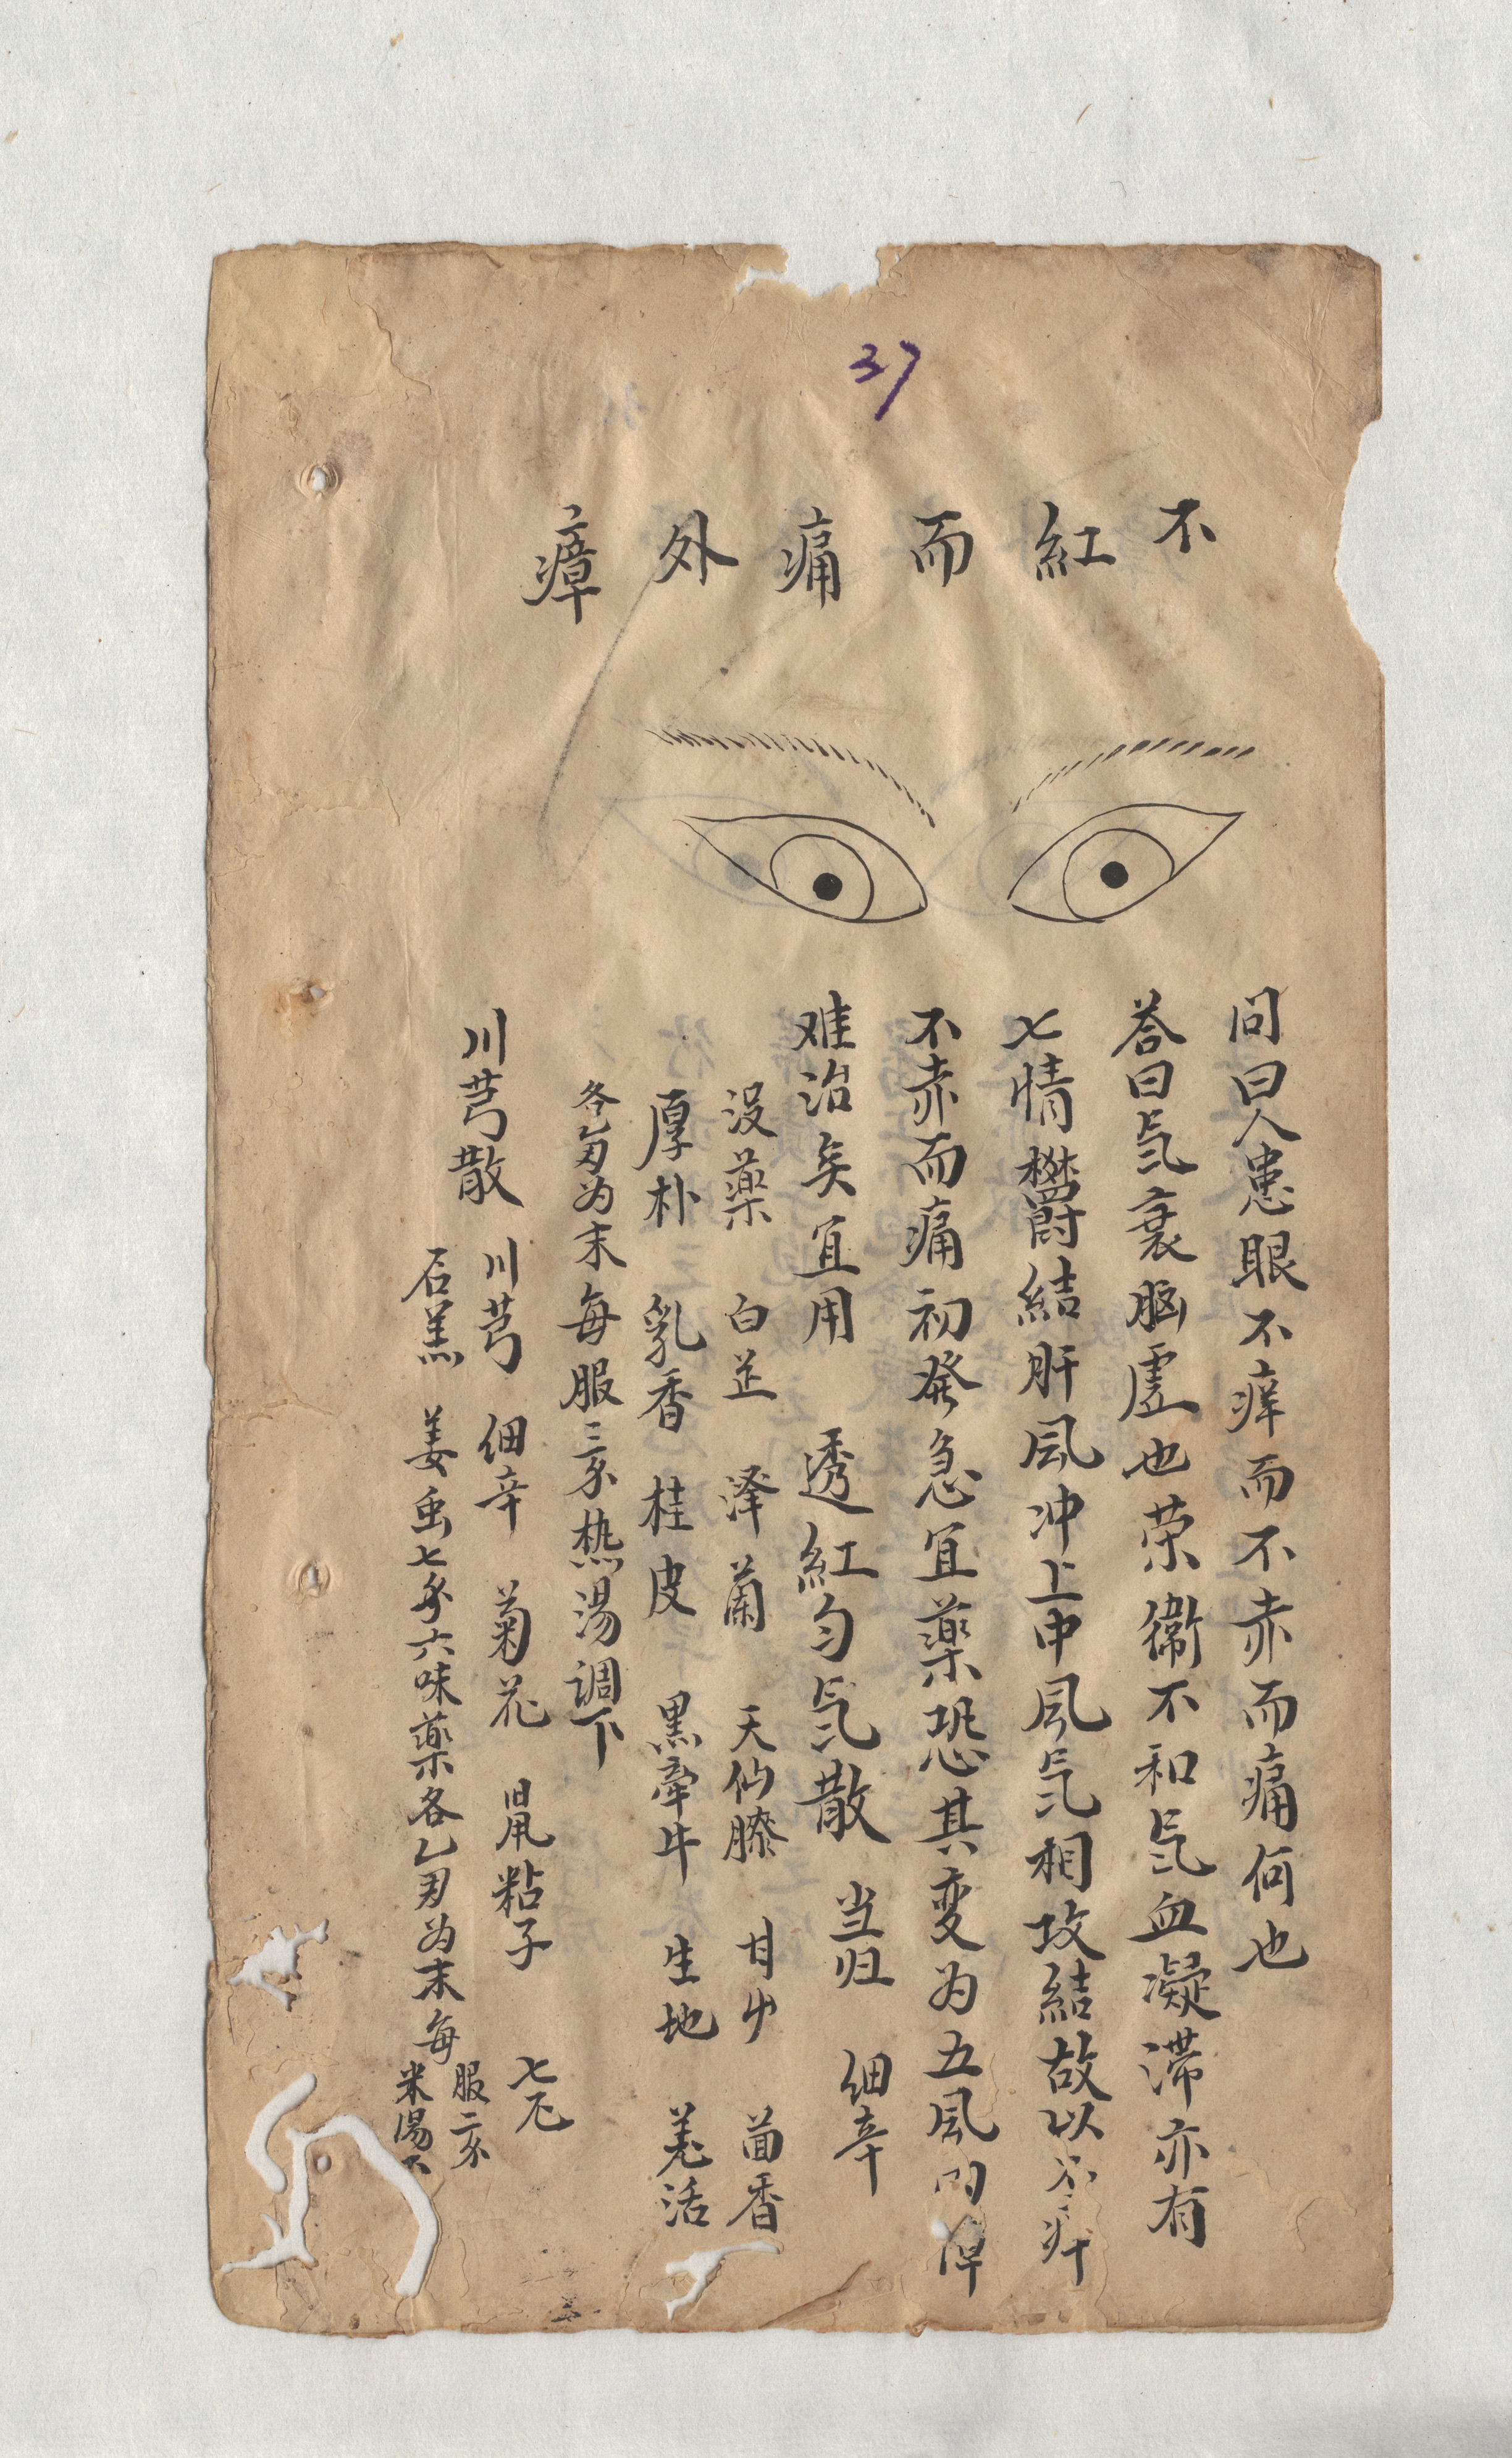 37
不紅而痛外瘴
問曰人患眼不痒而不赤而痛何也
荅曰氕衰脳虚也荣衛不和氕血凝滞亦有
七情欝結肝風冲上中風氕相攻結故以不痒
不赤而痛初発急宜薬恐其変为五風内障
难治矣宜用 透紅匀氕散 当归 细辛
没薬 白芷 泽蘭 天仙藤 甘艸 茴香
厚朴 乳香 桂皮 黒牽牛 生地 羌活
各乙刄为末每服三㐅热湯调下
川芎散 川芎 细辛 菊花 鼠粘子 七
石羔 姜虫七㐅六味薬各乙刄为末每
服二
米湯下